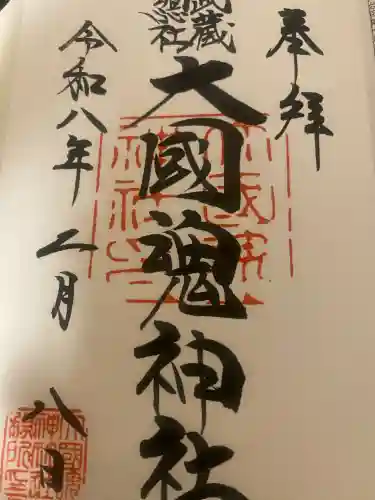 奉拝
武蔵
總社
大國魂神社
令和八年二月八日